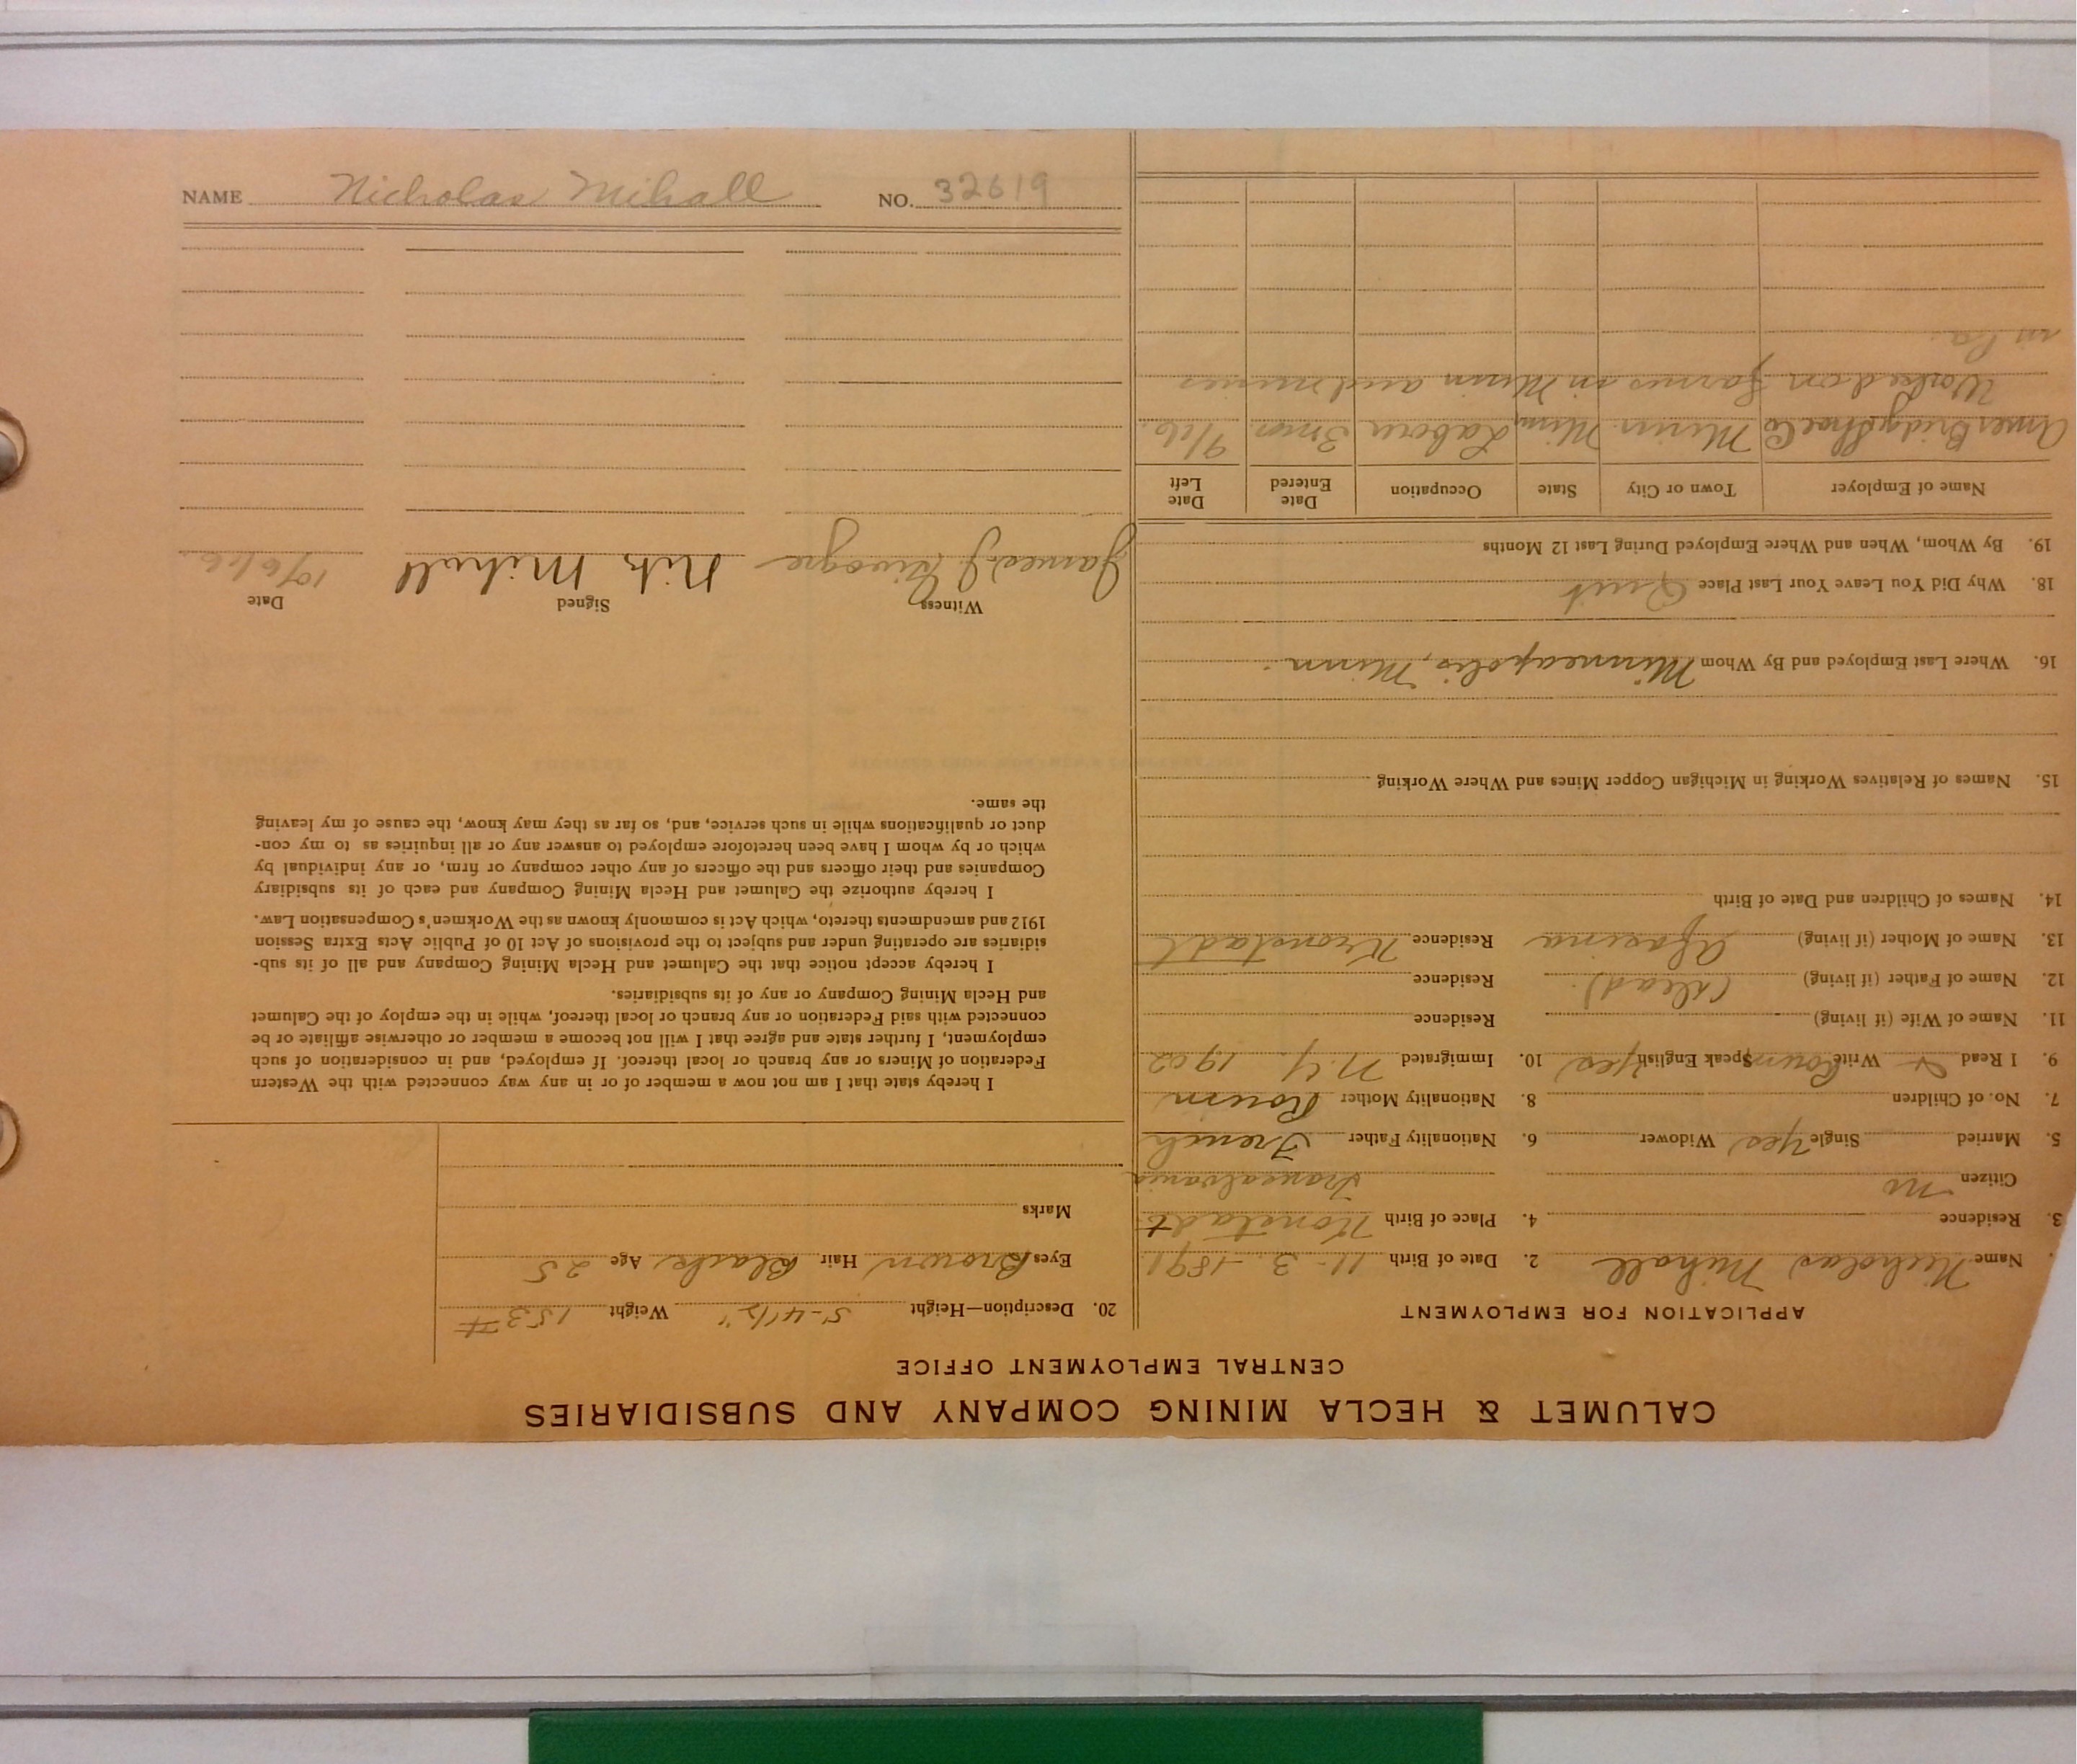 CALUMET & HECLA MINING COMPANY AND SUBSIDIARIES
CENTRAL EMPLOYMENT OFFICE
APPLICATION FOR EMPLOYMENT
Name Nicholas Mihall 2. Date of Birth 11-3-1891
3. Residence 4. Place of Birth
Citizen no
5. Married Single Yes Widower 6. Nationality Father French
7. No. of Children 8. Nationality Mother Roum
9. I Read & Write Roum Speak English Yes 10. Immigrated N.Y. 1902
11. Name of Wife (if living) Residence
12. Name of Father (if living) (dead) Residence
13. Name of Mother (if living) Residence Kronstadt
14. Names of Children and Date of Birth
15. Names of Relatives Working in Michigan Copper Mines and Where Working
16. Where Last Employed and By Whom Minneapolis, Minn.
18. Why Did You Leave Your Last Place Quit
19. By Whom, When and Where Employed During Last 12 Months
Name of Employer Town or City State Occupation Date Entered Date Left
Amer Bridge Co Minn Minn, Labour 3 mos 9/16.
Worked on farms in Minn and mines
in Pa.
20. Description—Height 5-4½" Weight 153#
Eyes Brown Hair Black Age 25
Marks
I hereby state that I am not now a member of or in any way connected with the Western
Federation of Miners or any branch or local thereof. If employed, and in consideration of such
employment, I further state and agree that I will not become a member or otherwise affiliate or be
connected with said Federation or any branch or local thereof, while in the employ of the Calumet
and Hecla Mining Company or any of its subsidiaries.
I hereby accept notice that the Calumet and Hecla Mining Company and all of its sub-
sidiaries are operating under and subject to the provisions of Act 10 of Public Acts Extra Session
1912 and amendments thereto, which Act is commonly known as the Workmen's Compensation Law.
I hereby authorize the Calumet and Hecla Mining Company and each of its subsidiary
Companies and their officers and the officers of any other company or firm, or any individual by
which or by whom I have been heretofore employed to answer any or all inquiries as to my con-
duct or qualifications while in such service, and, so far as they may know, the cause of my leaving
the same.
Witness Signed Date
James J. Nick Mihall 10/6/16.
NAME Nicholas Mihall NO. 32619